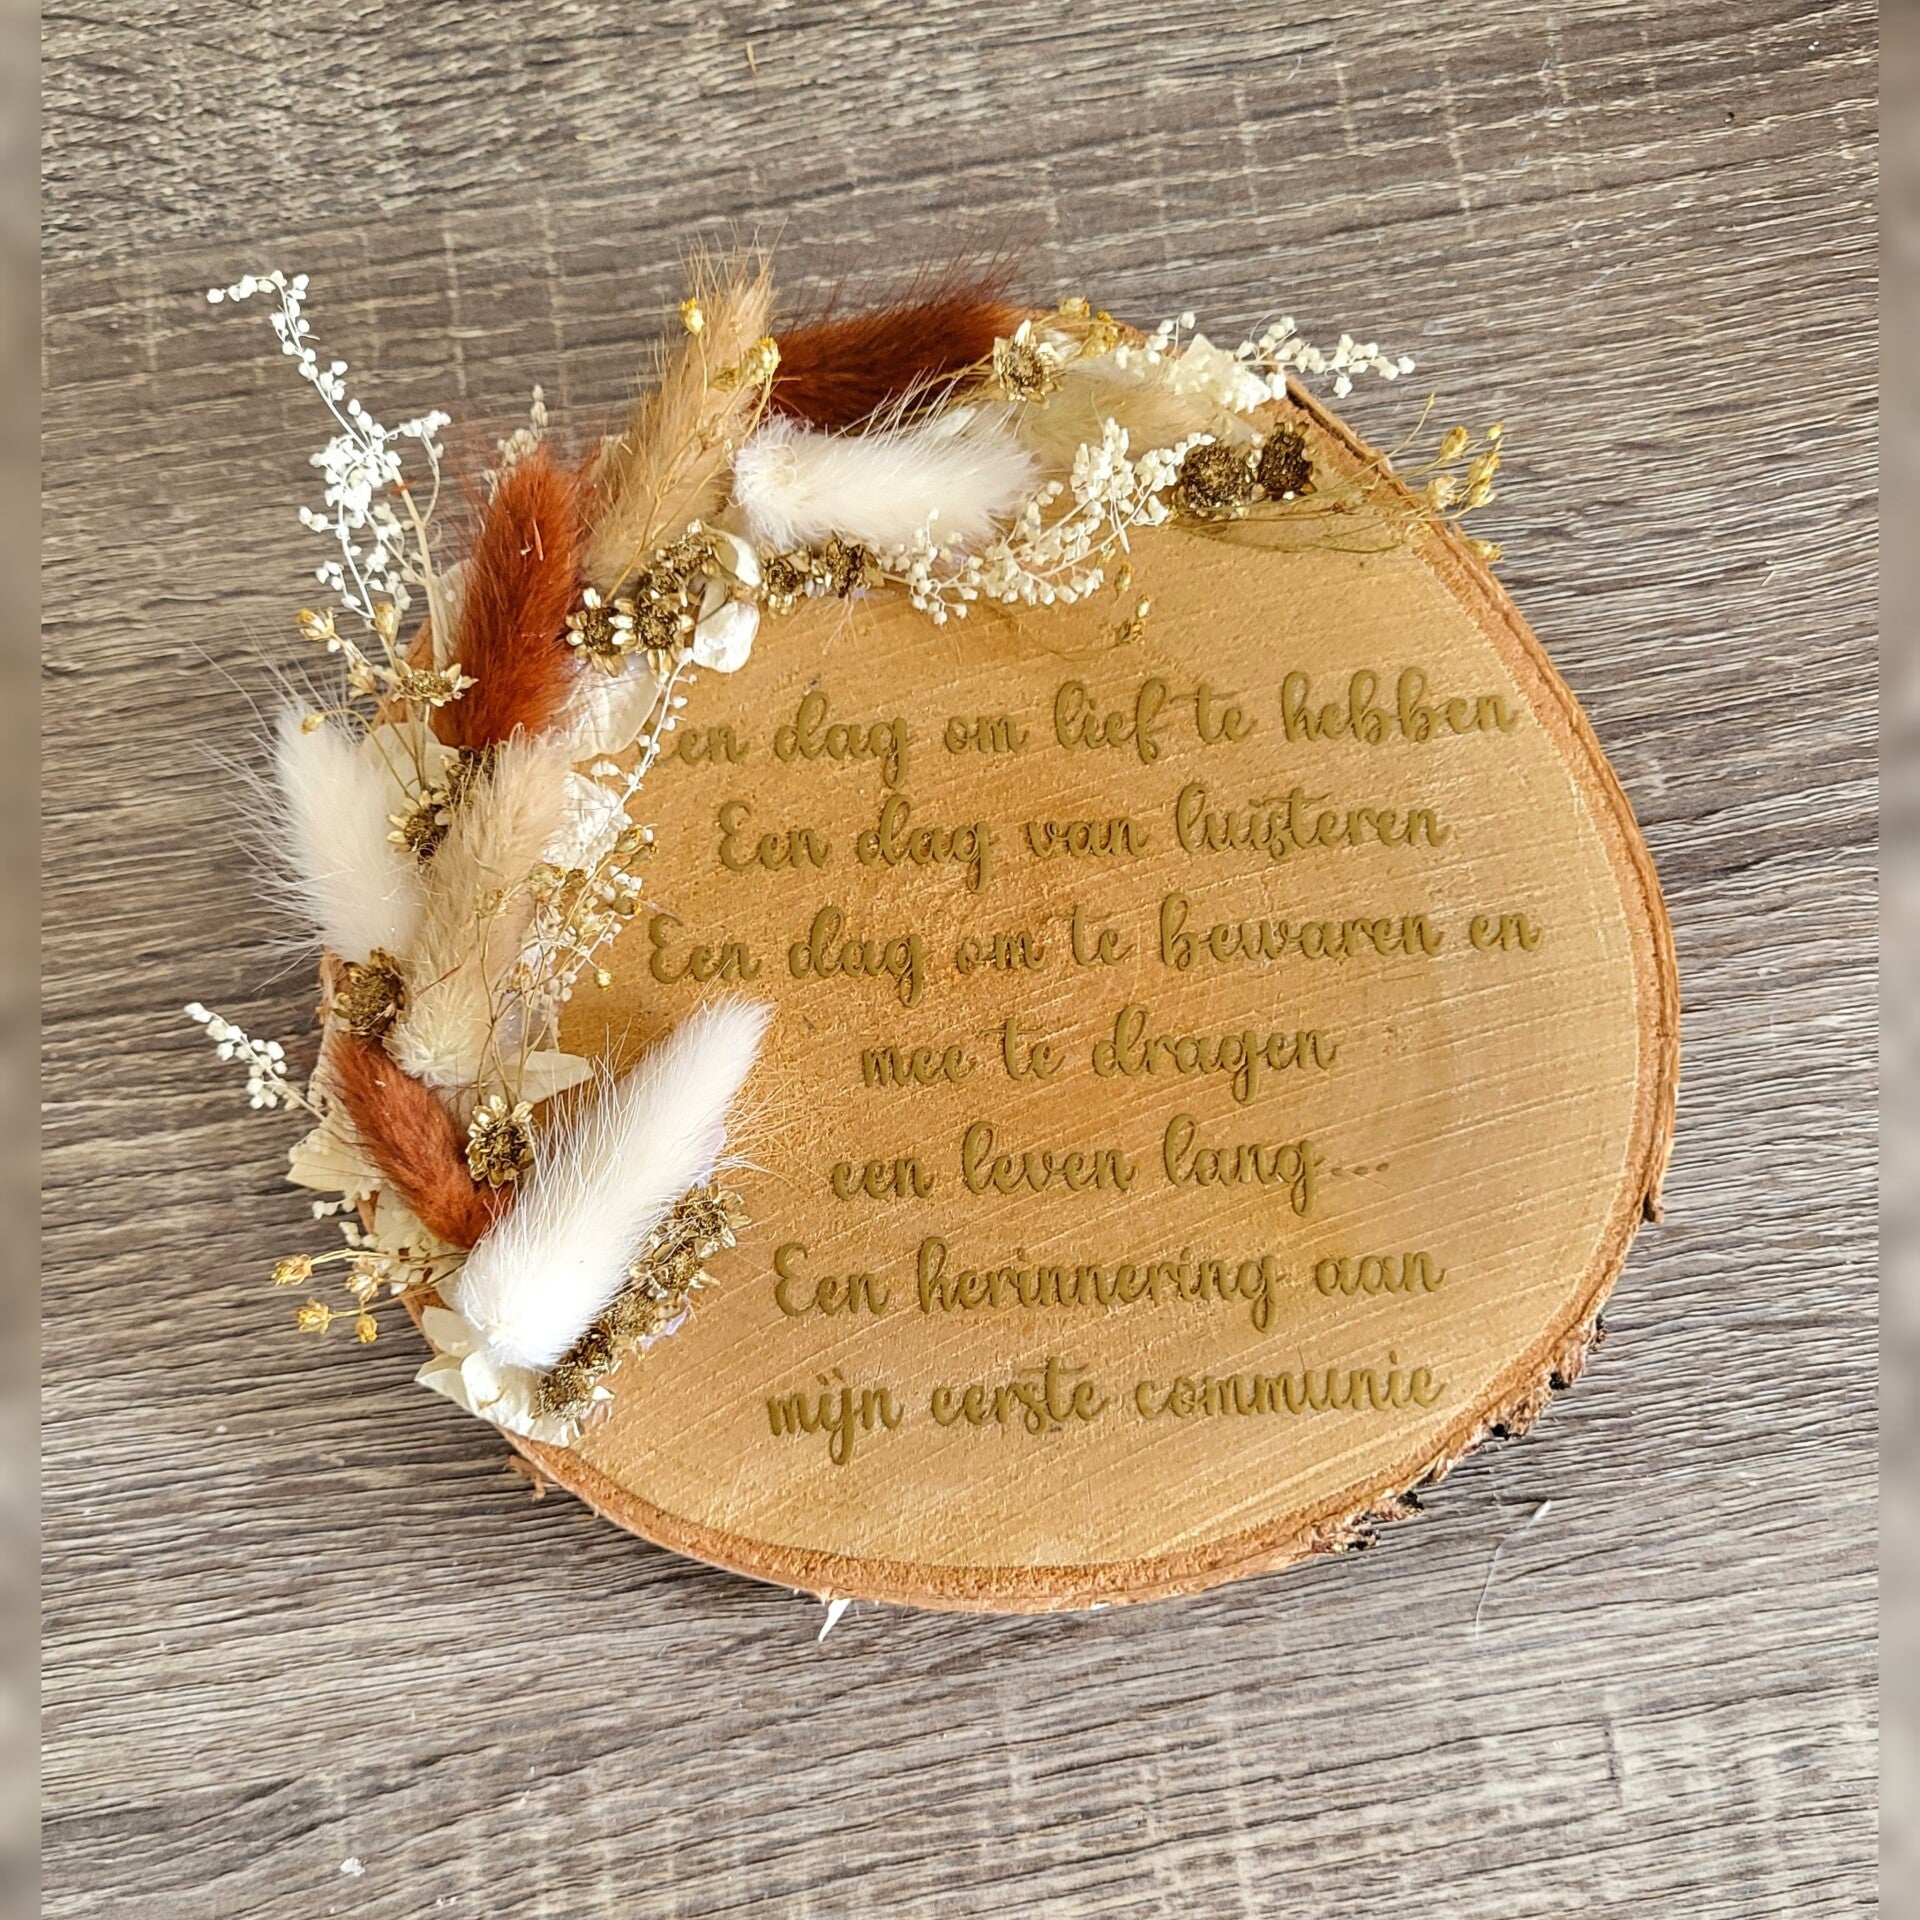 Een dag om lief te hebben
Een dag van luisteren
Een dag om te bewaren en
mee te dragen
een leven lang...
Een herinnering aan
mijn eerste communie